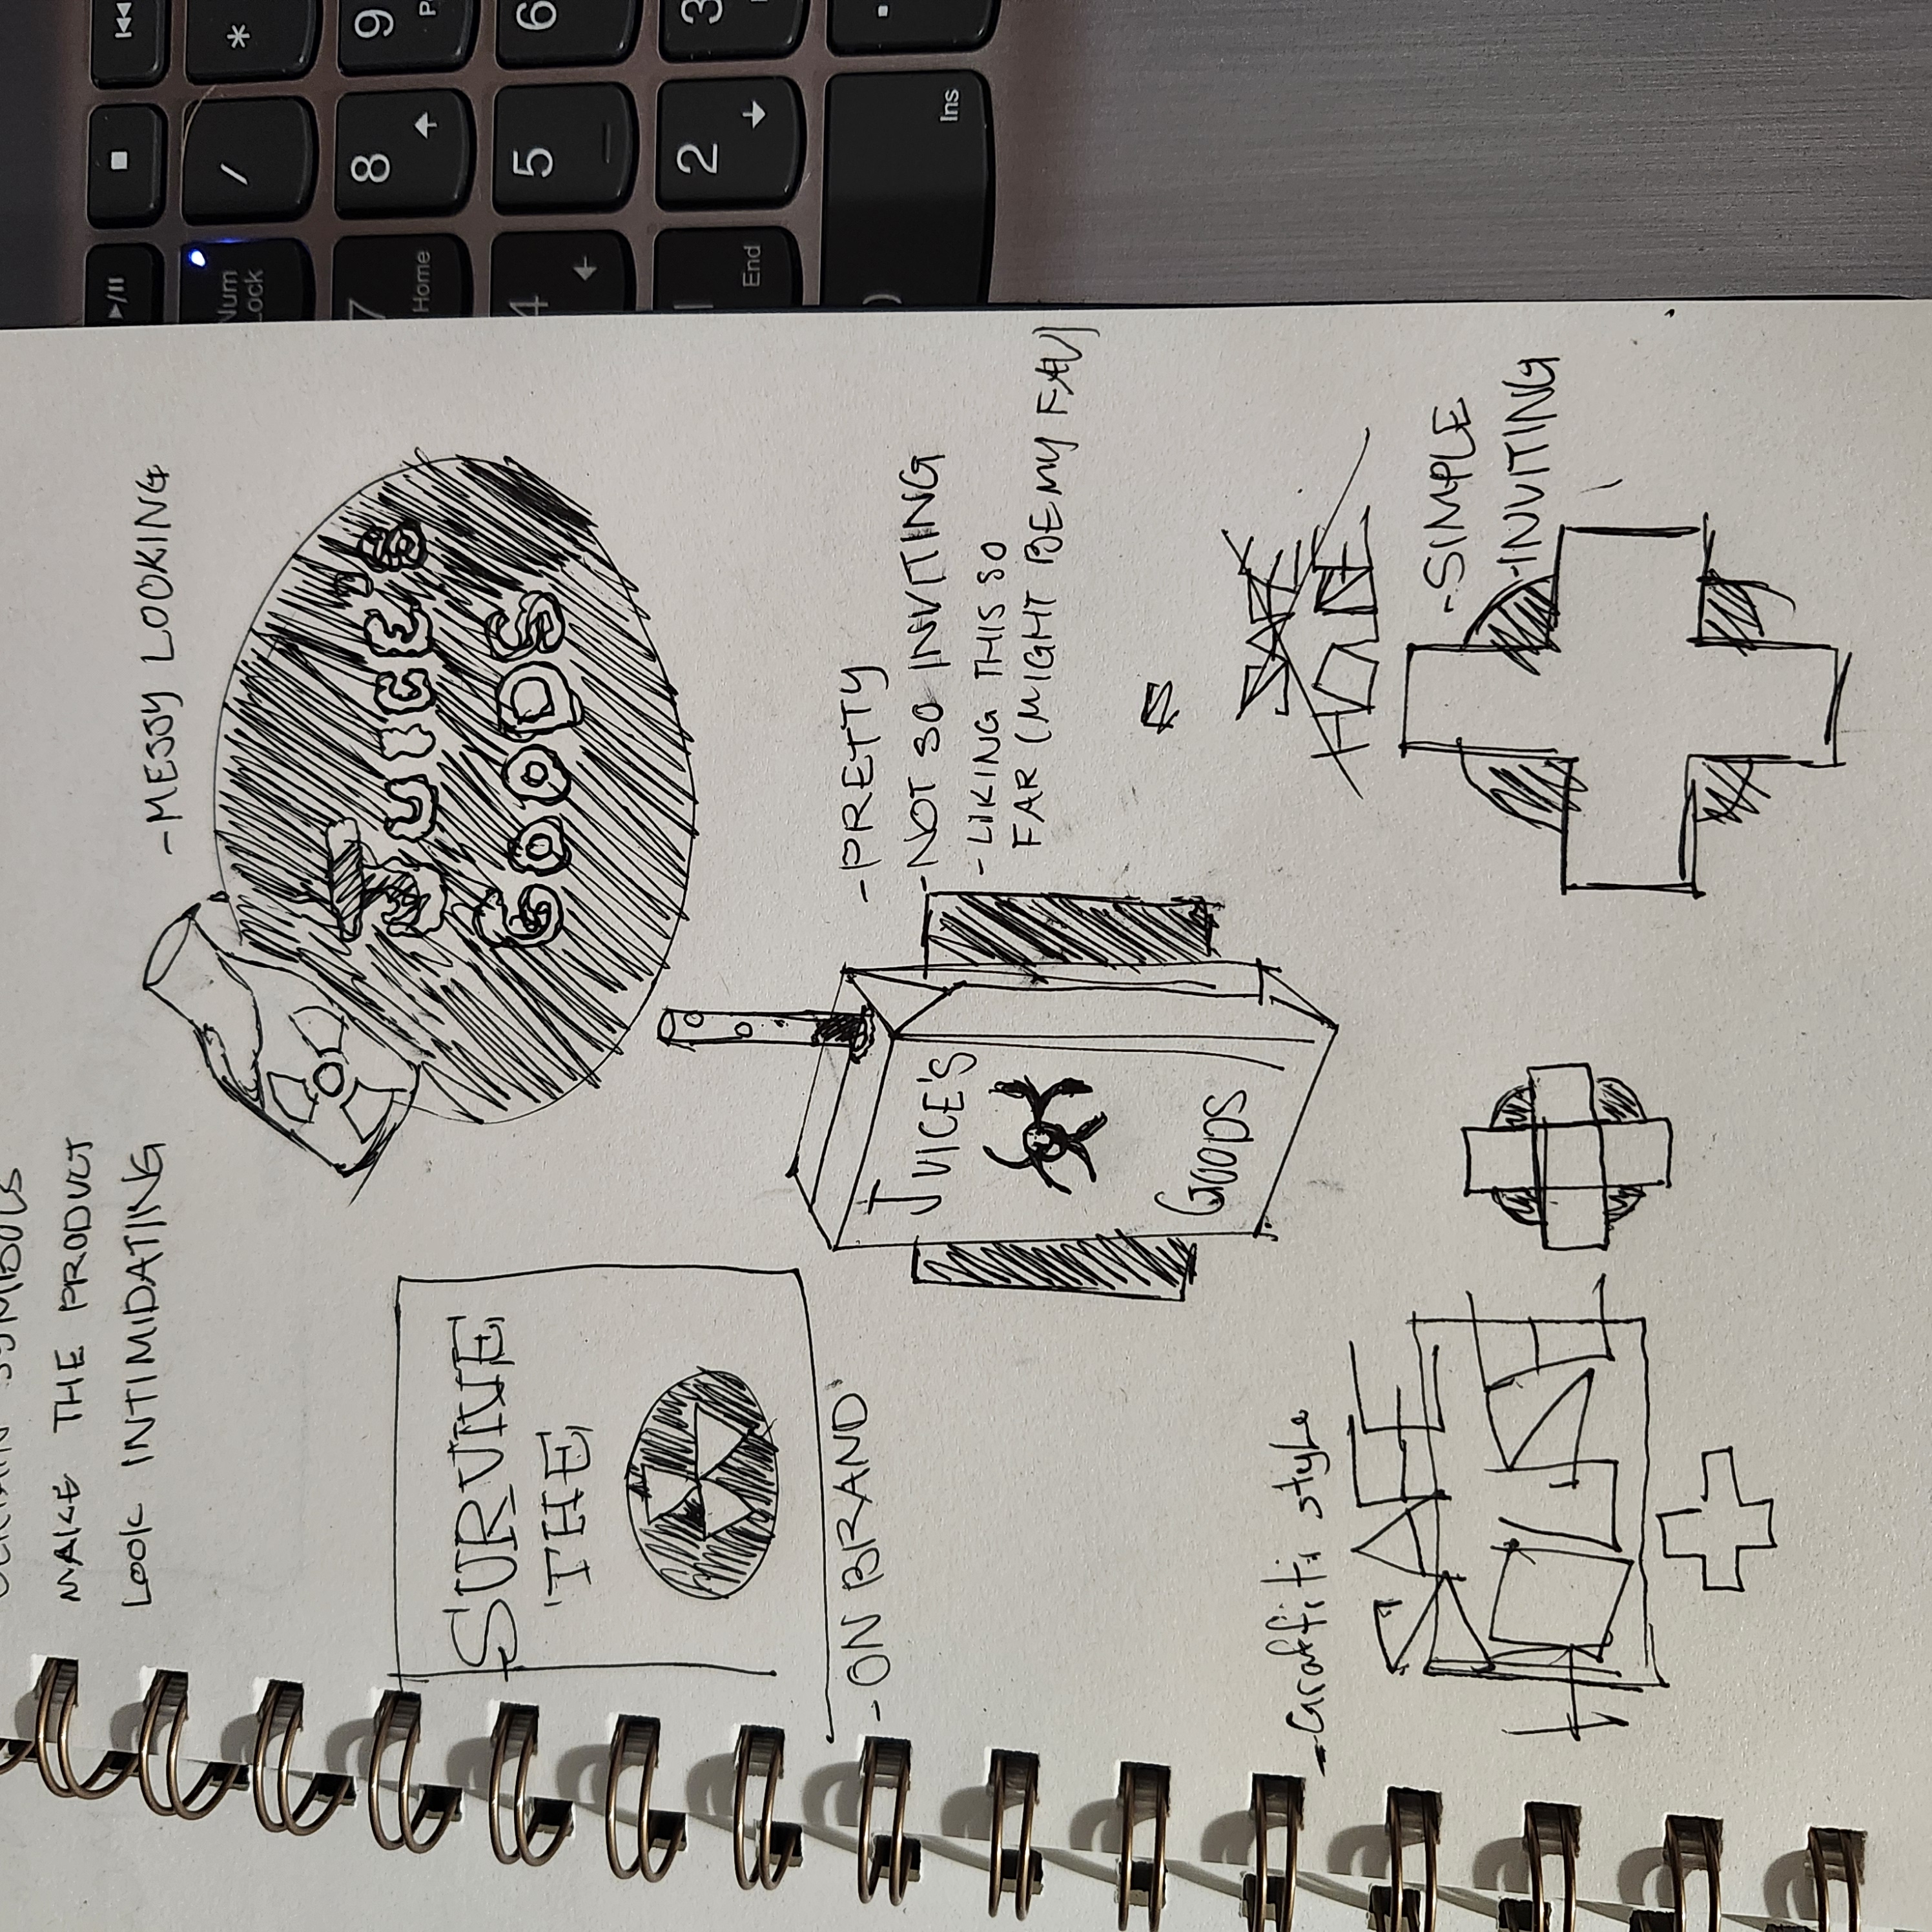 CERTAIN SYMBOLS
MAKE THE PRODUCT
LOOK INTIMIDATING
-MESSY LOOKING
JUICE'S
GOODS
SURVIVE
THE
-ON BRAND
JUICE'S
GOODS
-PRETTY
-NOT SO INVITING
-LIKING THIS SO
FAR (MIGHT BE MY FAV)
SAFE
HOUSE
-Graffiti style
SAFE
HOUSE
-SIMPLE
-INVITING
Num
Lock
/
*
7
Home
8
9
4
5
6
1
End
2
3
0
Ins
.